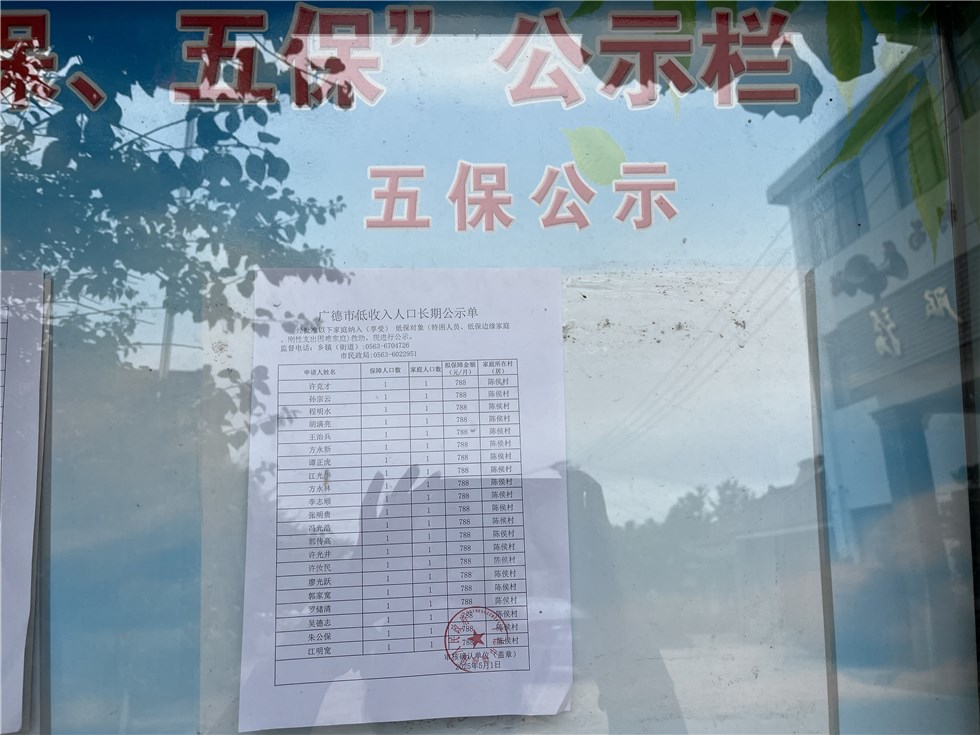 保、五保”公示栏
五保公示
广德市低收入人口长期公示单
经批准以下家庭纳入（享受）低保对象（特困人员、低保边缘家庭
，刚性支出困难家庭)救助，现进行公示。
监督电话：乡镇（街道）:0563-6704726
市民政局:0563-6022951
申请人姓名 保障人口数 家庭人口数 拟保障金额（元/月） 家庭所在村（居）
许克才 1 1 788 陈侯村
孙宗云 1 1 788 陈侯村
程明水 1 1 788 陈侯村
胡满亮 1 1 788 陈侯村
王治兵 1 1 788 陈侯村
方永新 1 1 788 陈侯村
谭正虎 1 1 788 陈侯村
江光 1 1 788 陈侯村
方永林 1 1 788 陈侯村
李志顺 1 1 788 陈侯村
张明贵 1 1 788 陈侯村
冯光浩 1 1 788 陈侯村
郭传高 1 1 788 陈侯村
许光井 1 1 788 陈侯村
许汝民 1 1 788 陈侯村
廖光跃 1 1 788 陈侯村
郭家宽 1 1 788 陈侯村
罗储清 1 1 788 陈侯村
吴德志 1 1 788 陈侯村
朱公保 1 1 788 陈侯村
江明宽 1 1 788 陈侯村
审核确认单位（盖章）
2025年5月1日